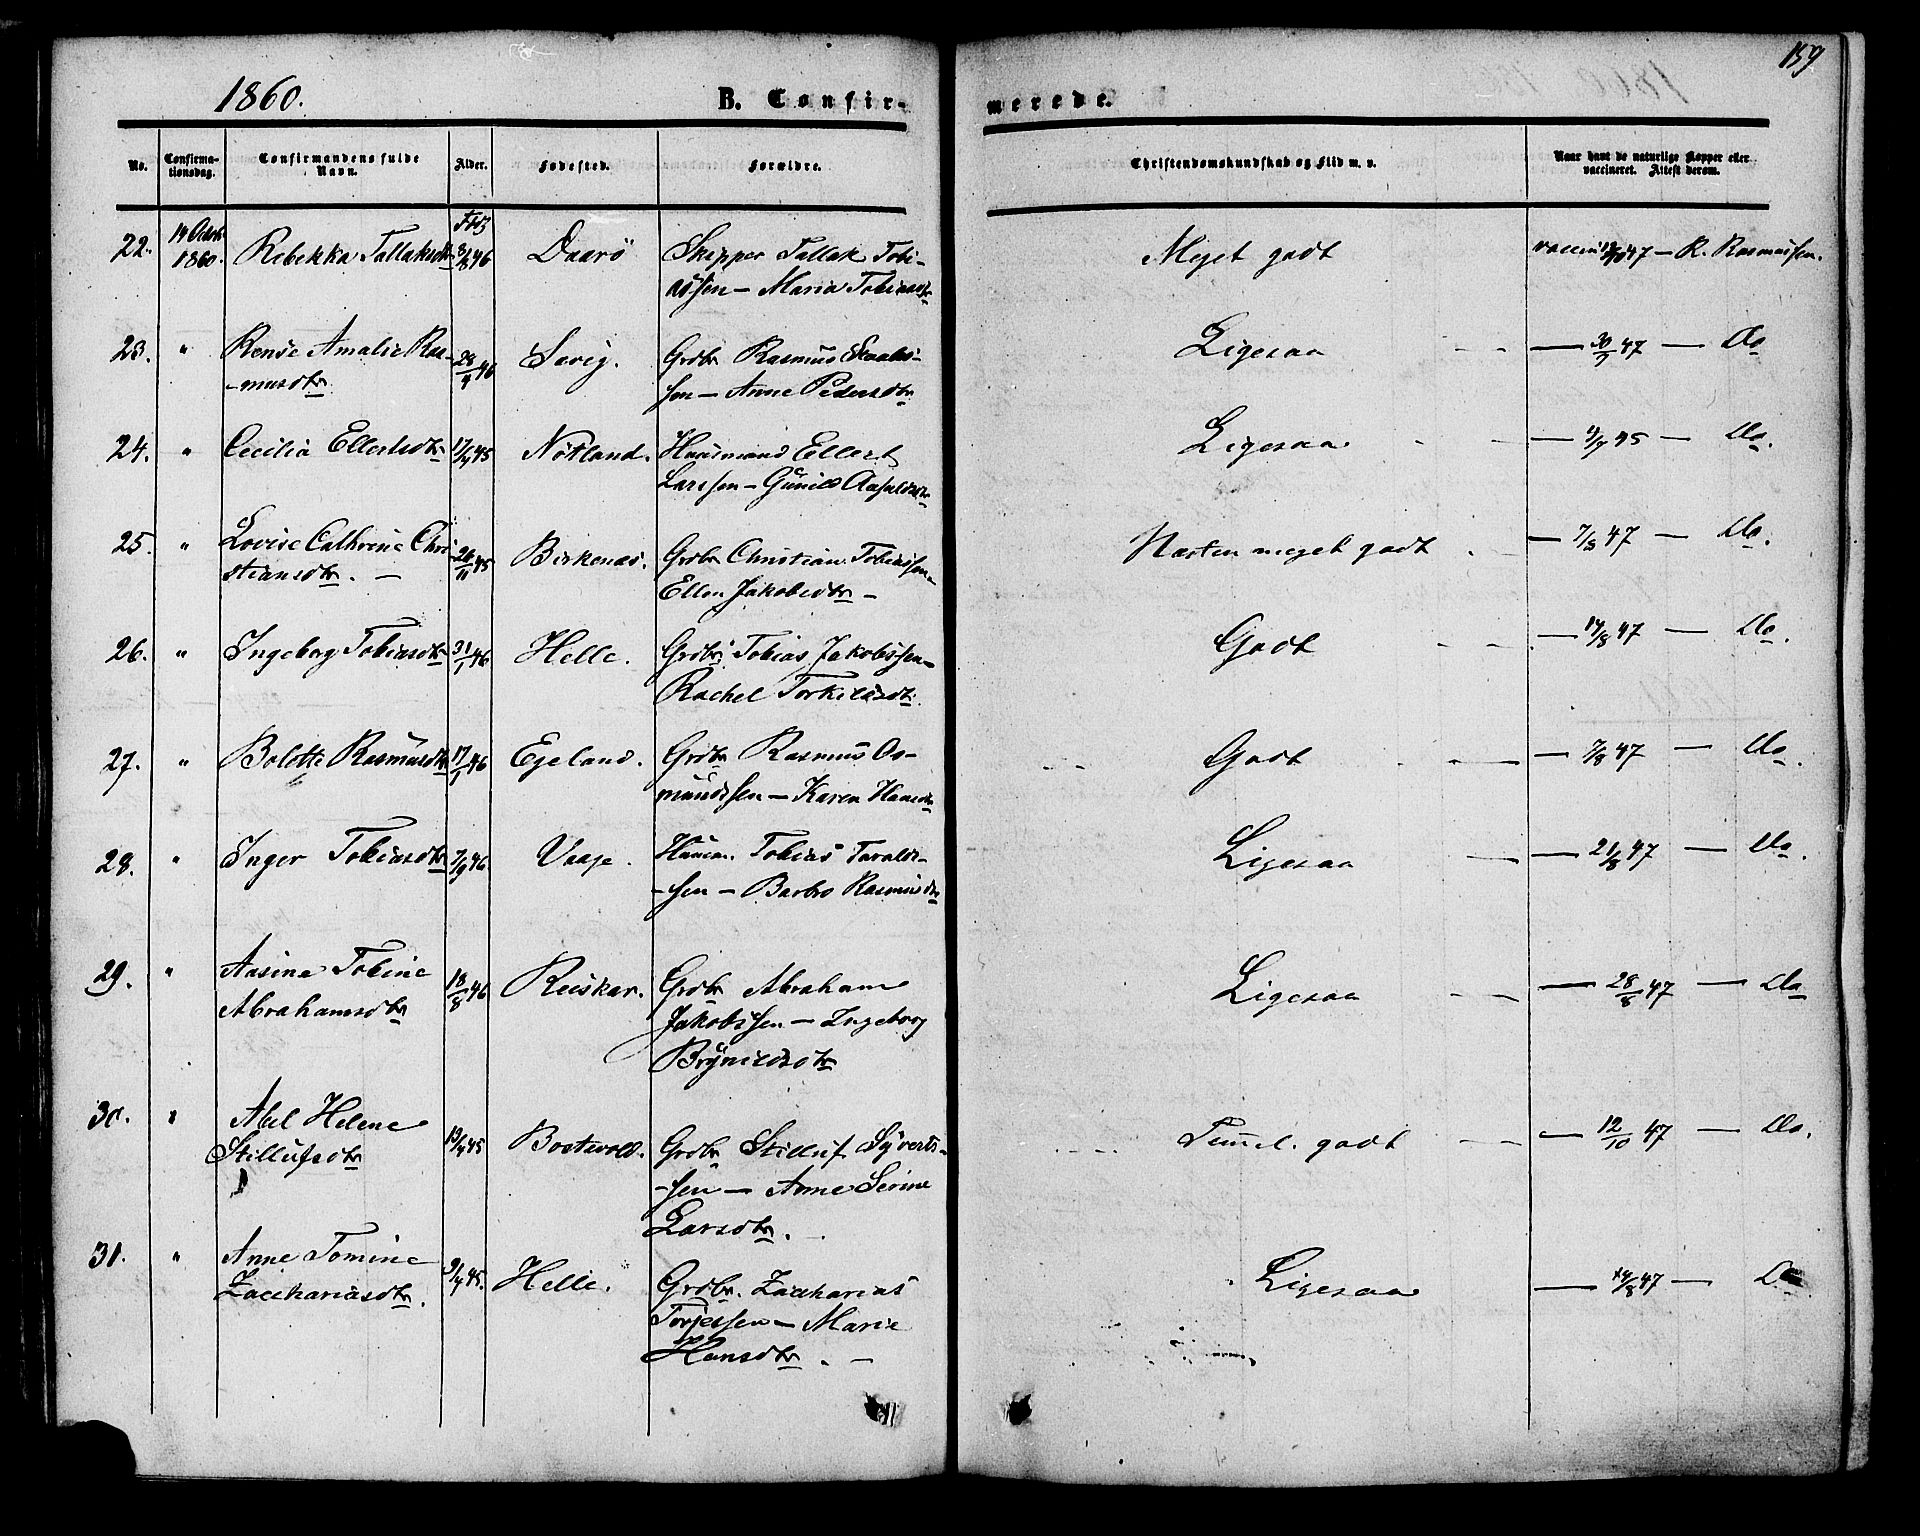 159
1860.
B. Confirmerede.
No.
Confirmationsdag.
Confirmandens fulde Navn.
Alder.
Fødested.
Forældre.
Christendomskundskab og Flid m. v.
Naar havt de naturlige Kopper eller vaccineret. Attest derom.
22. 14 Octob 1860. Rebekka Tallaksdtr 46 Daarö Skipper Tallak Tobi- Meget godt vaccin 47 — R. Rasmussen.
assen — Maria Tobiasdtr
23. " Rense Amalie Ras- 28/4 46 Grdbr Rasmus Ligesaa — 30/9 47 — Do
-musdtr. sen — Anne Pedersdtr
24. " Cecilia Ellertsdtr 17/4 45 Nötland. Huusmand Ellert Ligesaa — 4/7 45 — Do.
Larssen — Gunild
25. " Lovise Cathrine Chri- 26/11 45 Birkenæs. Grdbr Christian Tobiassen — Næsten meget godt — 7/8 47 — Do.
stiansdtr. — Ellen Jakobsdtr —
26. " Ingeborg Tobiasdtr 31/1 46 Helle. Grdbr Tobias Jakobssen — Godt — 14/8 47 — Do.
Rachel Torkildsdtr.
27. " Bolette Rasmusdtr 17/1 46 Egeland. Grdbr Rasmus Os- Godt — 7/8 47 — Do.
mundssen — Karen Hansdtr
28. " Inger Tobiasdtr 7/9 46 Vaaje. Huusm. Tobias Tarald- Ligesaa — 21/8 47 — Do.
-sen — Barbro Rasmusdtr
29. " Aasine Tobine 18/8 46 Reiskar. Grdbr Abraham Ligesaa — 28/8 47 — Do
Abrahamsdtr Jakobssen — Ingeborg
Brynildsdtr
30. " Abel Helene 19/4 45 Bostvold. Grdbr Stilluf Syverts- Temmel. godt — 12/10 47 — Do.
Stillufsdtr -sen — Anne Serine
Larsdtr.
31. " Anne Tomine 9/4 45. Helle. Grdbr. Zacharias Ligesaa — 14/8 47 — Do
Zachariasdtr. Torjessen — Marie
Hansdtr. —